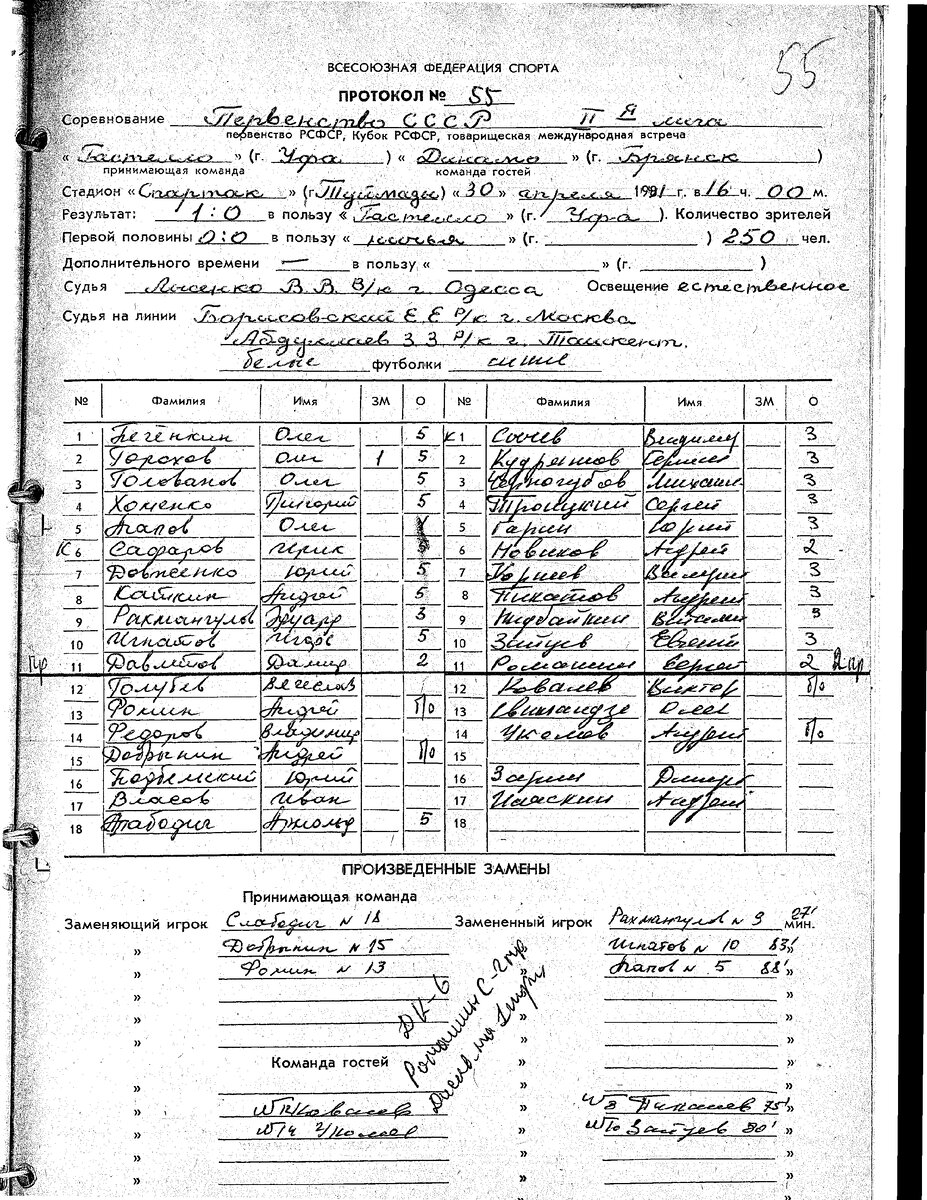 55
ВСЕСОЮЗНАЯ ФЕДЕРАЦИЯ СПОРТА
ПРОТОКОЛ № 55
Соревнование Первенство СССР II я лига
первенство РСФСР, Кубок РСФСР, товарищеская международная встреча
« Гастелло » (г. Уфа ) « Динамо » (г. Брянск )
принимающая команда команда гостей
Стадион « Спартак » (г Туймазы) « 30 » апреля 1991 г. в 16 ч. 00 м.
Результат: 1:0 в пользу « Гастелло » (г. Уфа ). Количество зрителей
Первой половины 0:0 в пользу « ничья » (г. ) 250 чел.
Дополнительного времени — в пользу « » (г. )
Судья Лысенко В.В. в/к г Одесса Освещение естественное
Судья на линии Борисовский Е.Е р/к г. Москва
Абдуллаев З З р/к г. Ташкент.
белые футболки синие
№ Фамилия Имя ЗМ О № Фамилия Имя ЗМ О
1 Пегенкин Олег 5 к 1 Сычев Владимир 3
2 Горохов Олег 1 5 2 Кудряшов Герман 3
3 Голованов Олег 5 3 Черногубов Михаил 3
4 Хоменко Григорий 5 4 Троицкий Сергей 3
5 Агапов Олег 5 Гарин Юрий 3
К 6 Сафаров Ирик 5 6 Новиков Андрей 2
7 Довженко Юрий 5 7 Корнеев Валерий 3
8 Кайткин Андрей 5 8 Пикатов Андрей 3
9 Рахмангулов Эдуард 3 9 Виталий 3
10 Игнатов Игорь 5 10 Зайцев Евгений 3
пр 11 Давлетов Дамир 2 11 Ромашин Сергей 2 2 пр
12 Голубев Вячеслав 12 Ковалев Виктор П/о
13 Фомин Андрей П/о 13 Олег
14 Федоров Владимир 14 Уколов Андрей П/о
15 Добрынин Андрей П/о 15
16 Подбемский Юрий 16 Зорин Дмитрий
17 Власов Иван 17 Андрей
18 Слабодич Арнольд 5 18
ПРОИЗВЕДЕННЫЕ ЗАМЕНЫ
Принимающая команда
Заменяющий игрок Слабодич № 18 Замененный игрок Рахмангулов № 9 27' мин.
» Добрынин № 15 » Игнатов № 10 83' »
» Фомин № 13 » Агапов № 5 88' »
» » »
» » »
» » »
ДК-6
Ромашин С-2 пр
Дискв. на 1 игру
» Команда гостей » »
» » »
» №12 Ковалев » №8 Пикашев 75' »
» №14 Уколов » №10 Зайцев 80' »
» » »
» » »